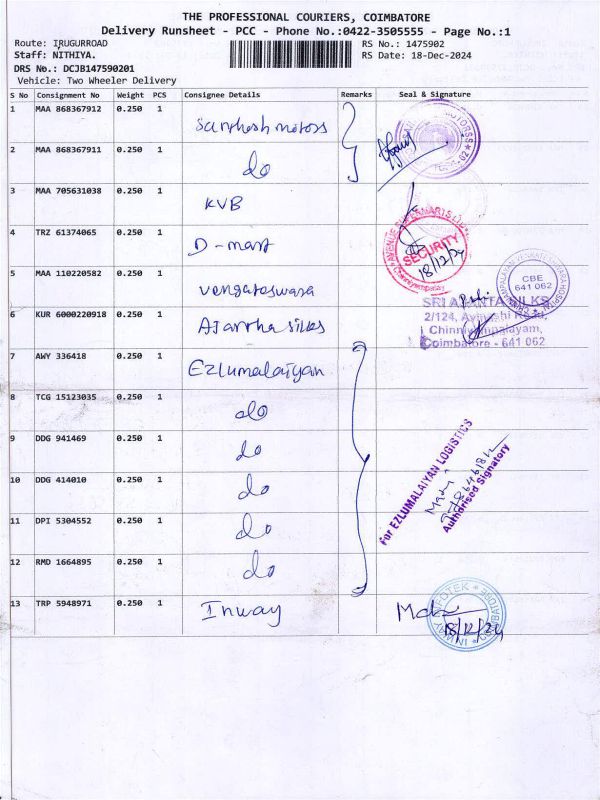 THE PROFESSIONAL COURIERS, COIMBATORE
Delivery Runsheet - PCC - Phone No.:0422-3505555 - Page No.:1
Route: IRUGURROAD RS No.: 1475902
Staff: NITHIYA. RS Date: 18-Dec-2024
DRS No.: DCJB147590201
Vehicle: Two Wheeler Delivery
S No Consignment No Weight PCS Consignee Details Remarks Seal & Signature
1 MAA 868367912 0.250 1 Santhosh motors
2 MAA 868367911 0.250 1 do
3 MAA 705631038 0.250 1 KVB
4 TRZ 61374065 0.250 1 D-mart
SECURITY
18/12/24
Chinniyampalayam
5 MAA 110220582 0.250 1 vengateswara
CBE
641 062
6 KUR 6000220918 0.250 1 Ajantha silks
SRI AJANTA SILKS
2/124, Avinashi Road,
Chinniyampalayam,
Coimbatore - 641 062
7 AWY 336418 0.250 1 Ezlumalaiyan
8 TCG 15123035 0.250 1 do
9 DDG 941469 0.250 1 do
10 DDG 414010 0.250 1 do
11 DPI 5304552 0.250 1 do
12 RMD 1664895 0.250 1 do
For EZLUMALAIYAN LOGISTICS
Authorised Signatory
13 TRP 5948971 0.250 1 Inway
INWAY INFOTEK COIMBATORE
18/12/24